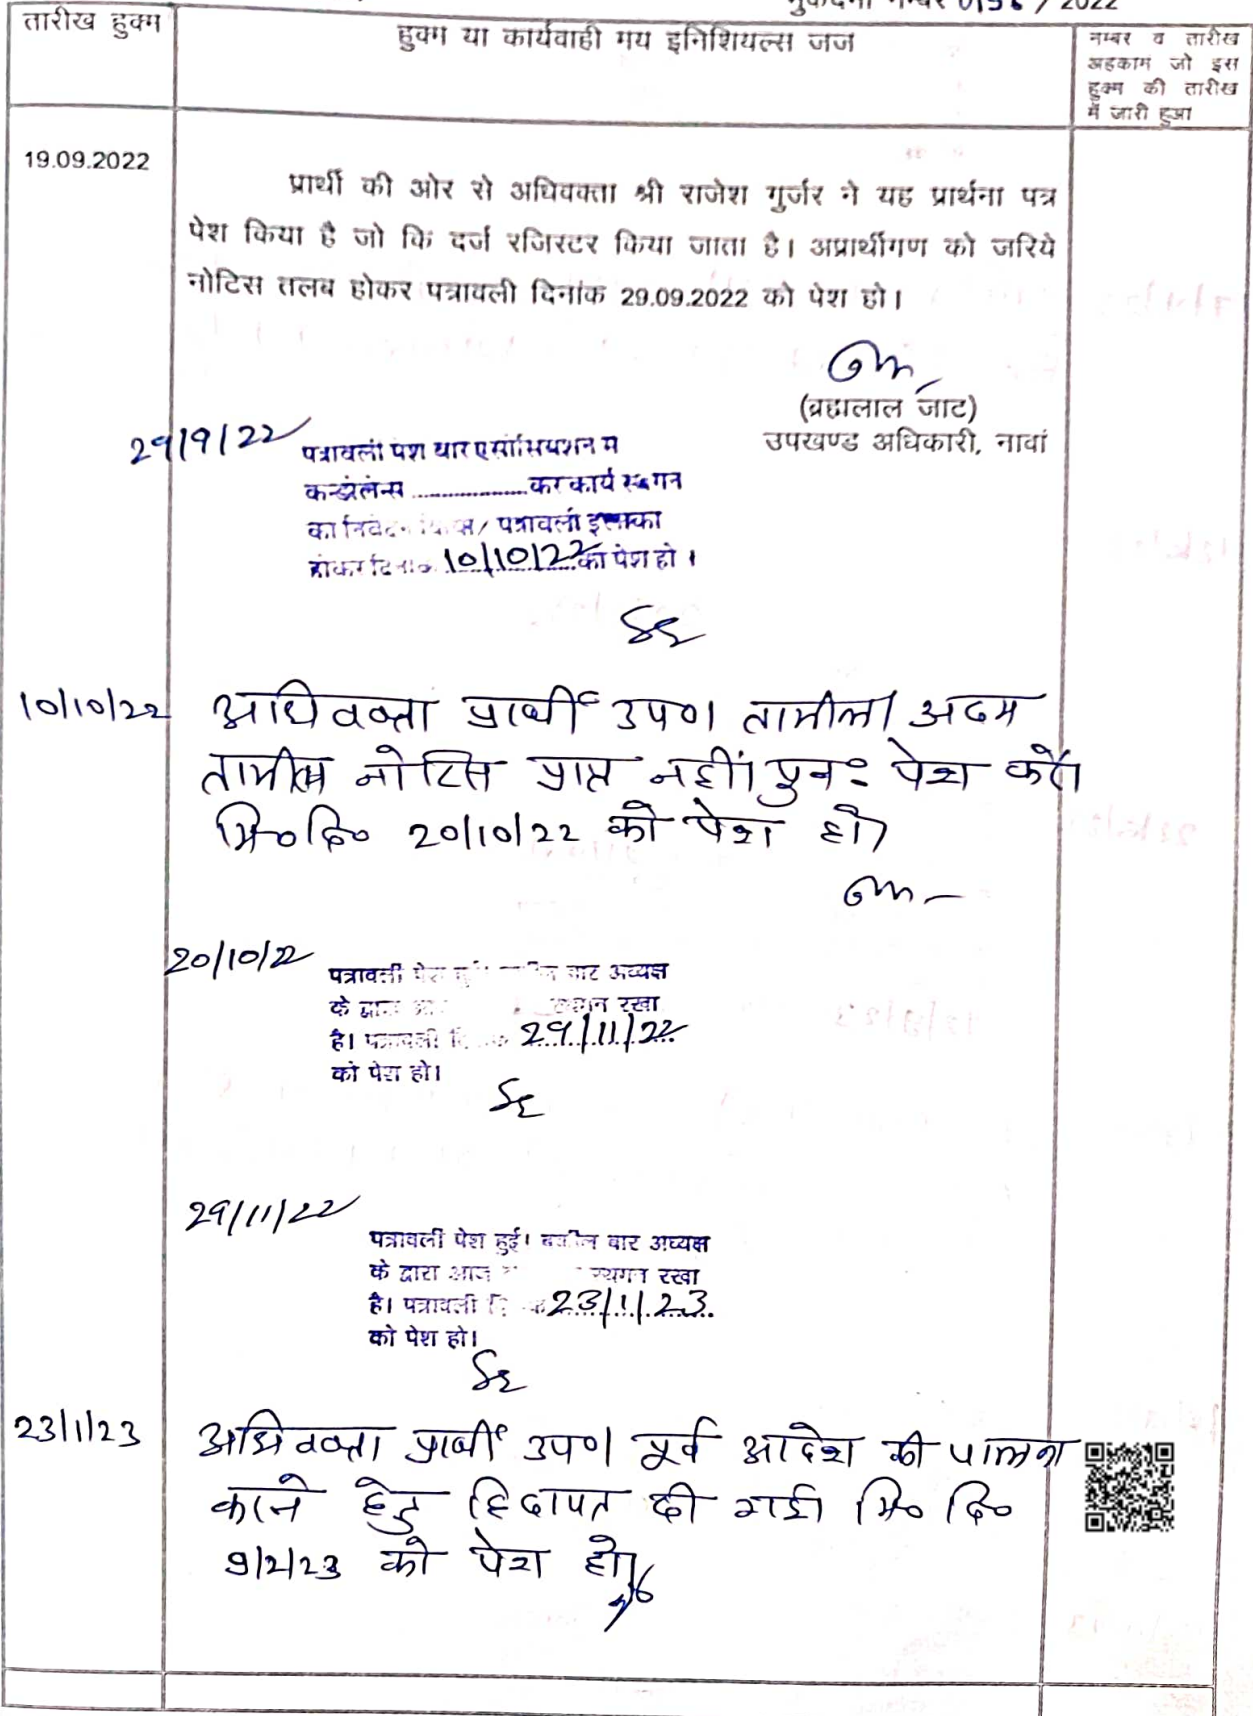 मुकदमा नम्बर / 2022
तारीख हुक्म
हुक्म या कार्यवाही मय इनिशियल्स जज
नम्बर व तारीख
अहकाम जो इस
हुक्म की तारीख
में जारी हुआ
19.09.2022
प्रार्थी की ओर से अधिवक्ता श्री राजेश गुर्जर ने यह प्रार्थना पत्र
पेश किया है जो कि दर्ज रजिस्टर किया जाता है। अप्रार्थीगण को जरिये
नोटिस तलब होकर पत्रावली दिनांक 29.09.2022 को पेश हो।
(ब्रह्मलाल जाट)
उपखण्ड अधिकारी, नावां
29/9/22
पत्रावली पेश बार एसोसियेशन ने
कन्डोलेन्स ........ कर कार्य स्थगन
का निवेदन / पत्रावली
होकर दिनांक 10/10/22 को पेश हो ।
10/10/22
अधिवक्ता प्रार्थी उप० । तामील / अदम
तामील नोटिस प्राप्त नहीं। पुनः पेश करें।
मि० दि० 20/10/22 को पेश हो।
20/10/22
पत्रावली पेश बार अध्यक्ष
के द्वारा स्थगन रखा
है। पत्रावली 29/11/22
को पेश हो।
29/11/22
पत्रावली पेश हुई। वकील बार अध्यक्ष
के द्वारा आज स्थगन रखा
है। पत्रावली 23/1/23
को पेश हो।
23/1/23
अधिवक्ता प्रार्थी उप० । पूर्व आदेश की पालना
करने हेतु हिदायत दी गई। मि० दि०
9/2/23 को पेश हो।